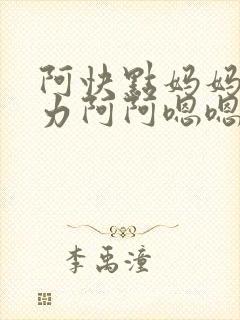 阿快點妈妈
力阿阿嗯嗯
李禹潼